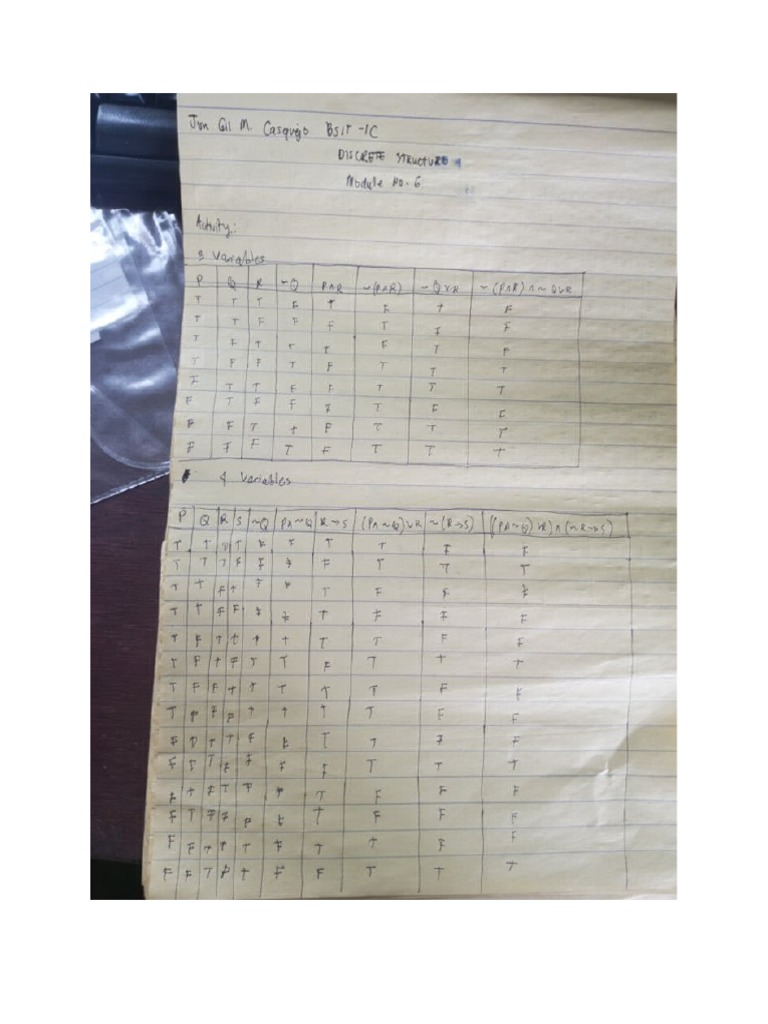 Jon Gil M. Casquejo BSIT -1C
DISCRETE STRUCTURE 1
Module No. 6
Activity:
3 Variables
P Q R ~Q P∧R ~(P∧R) ~Q∨R ~(P∧R)∧~Q∨R
T T T F T F T F
T T F F F T F F
T F T T T F T F
T F F T F T T T
F T T F F T T T
F T F F F T F F
F F T T F T T T
F F F T F T T T
4 Variables
P Q R S ~Q P∧~Q R→S (P∧~Q)∨R ~(R→S) ((P∧~Q)∨R)∧(~R→S)
T T T T F F T T F F
T T T F F F F T T T
T T F T F F T F F F
T T F F F F T F F F
T F T T T T T T F F
T F T F T T F T T T
T F F T T T T T F F
T F F F T T T T F F
F T T T F F T T F F
F T T F F F F T T T
F T F T F F T F F F
F T F F F F T F F F
F F T T T F T T F F
F F T F T F F T T T